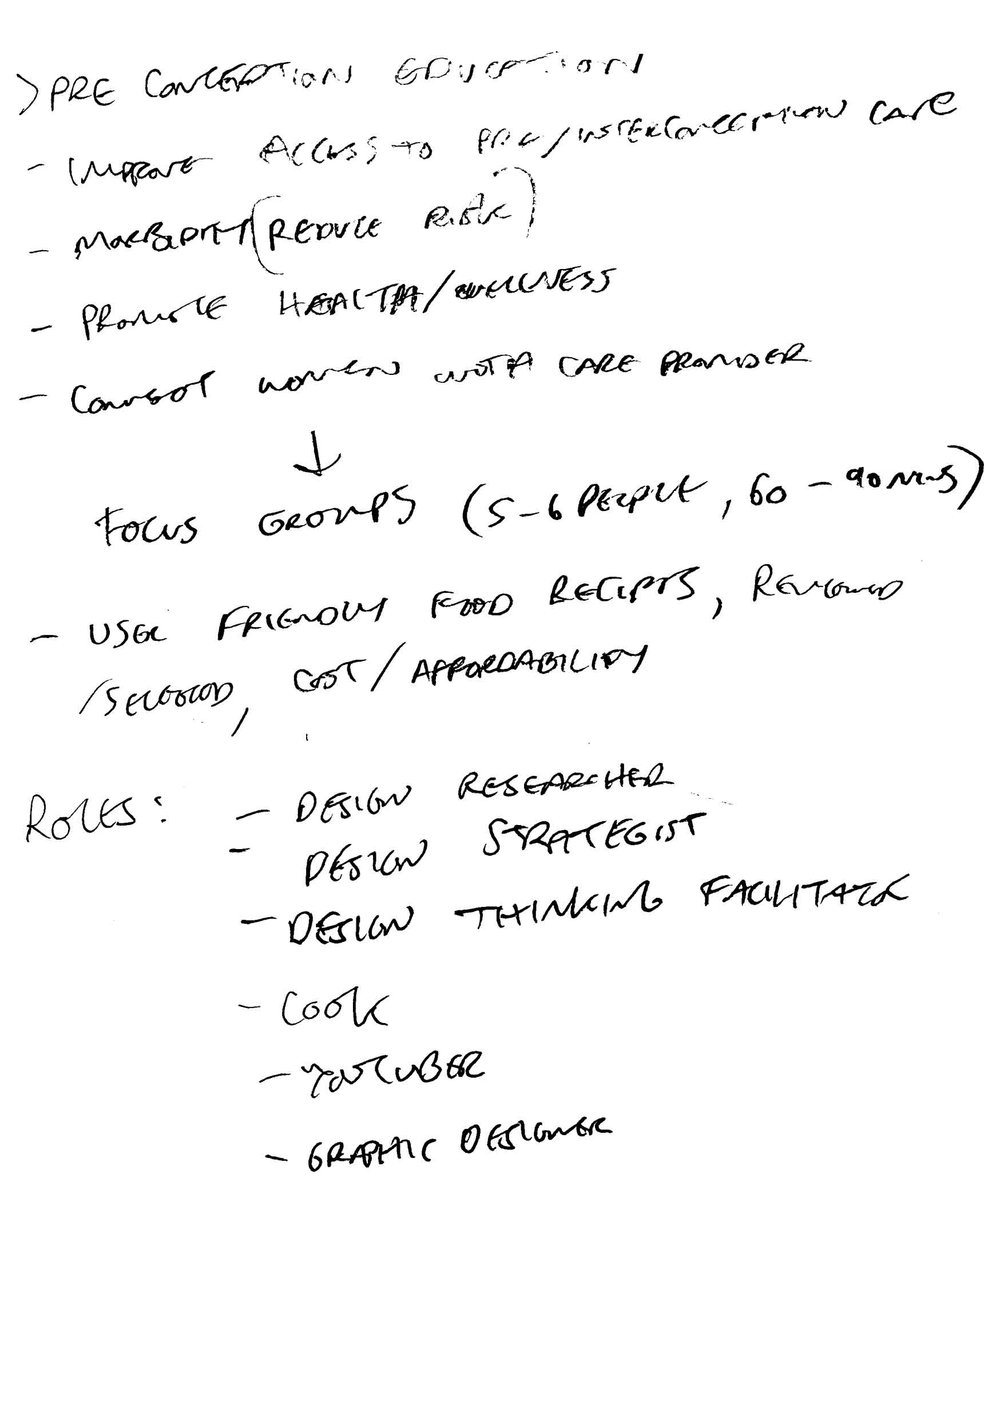 > PRE CONCEPTION EDUCATION
- IMPROVE ACCESS TO PRE/INTERCONCEPTION CARE
- MORBIDITY (REDUCE RISK)
- PROMOTE HEALTH/WELLNESS
- CONNECT WOMEN WITH CARE PROVIDER
↓
FOCUS GROUPS (5-6 PEOPLE, 60 - 90 MINS)
- USER FRIENDLY FOOD RECIPES, REVIEWED
/SELECTED, COST/AFFORDABILITY
ROLES: - DESIGN RESEARCHER
- DESIGN STRATEGIST
- DESIGN THINKING FACILITATOR
- COOK
- YOUTUBER
- GRAPHIC DESIGNER